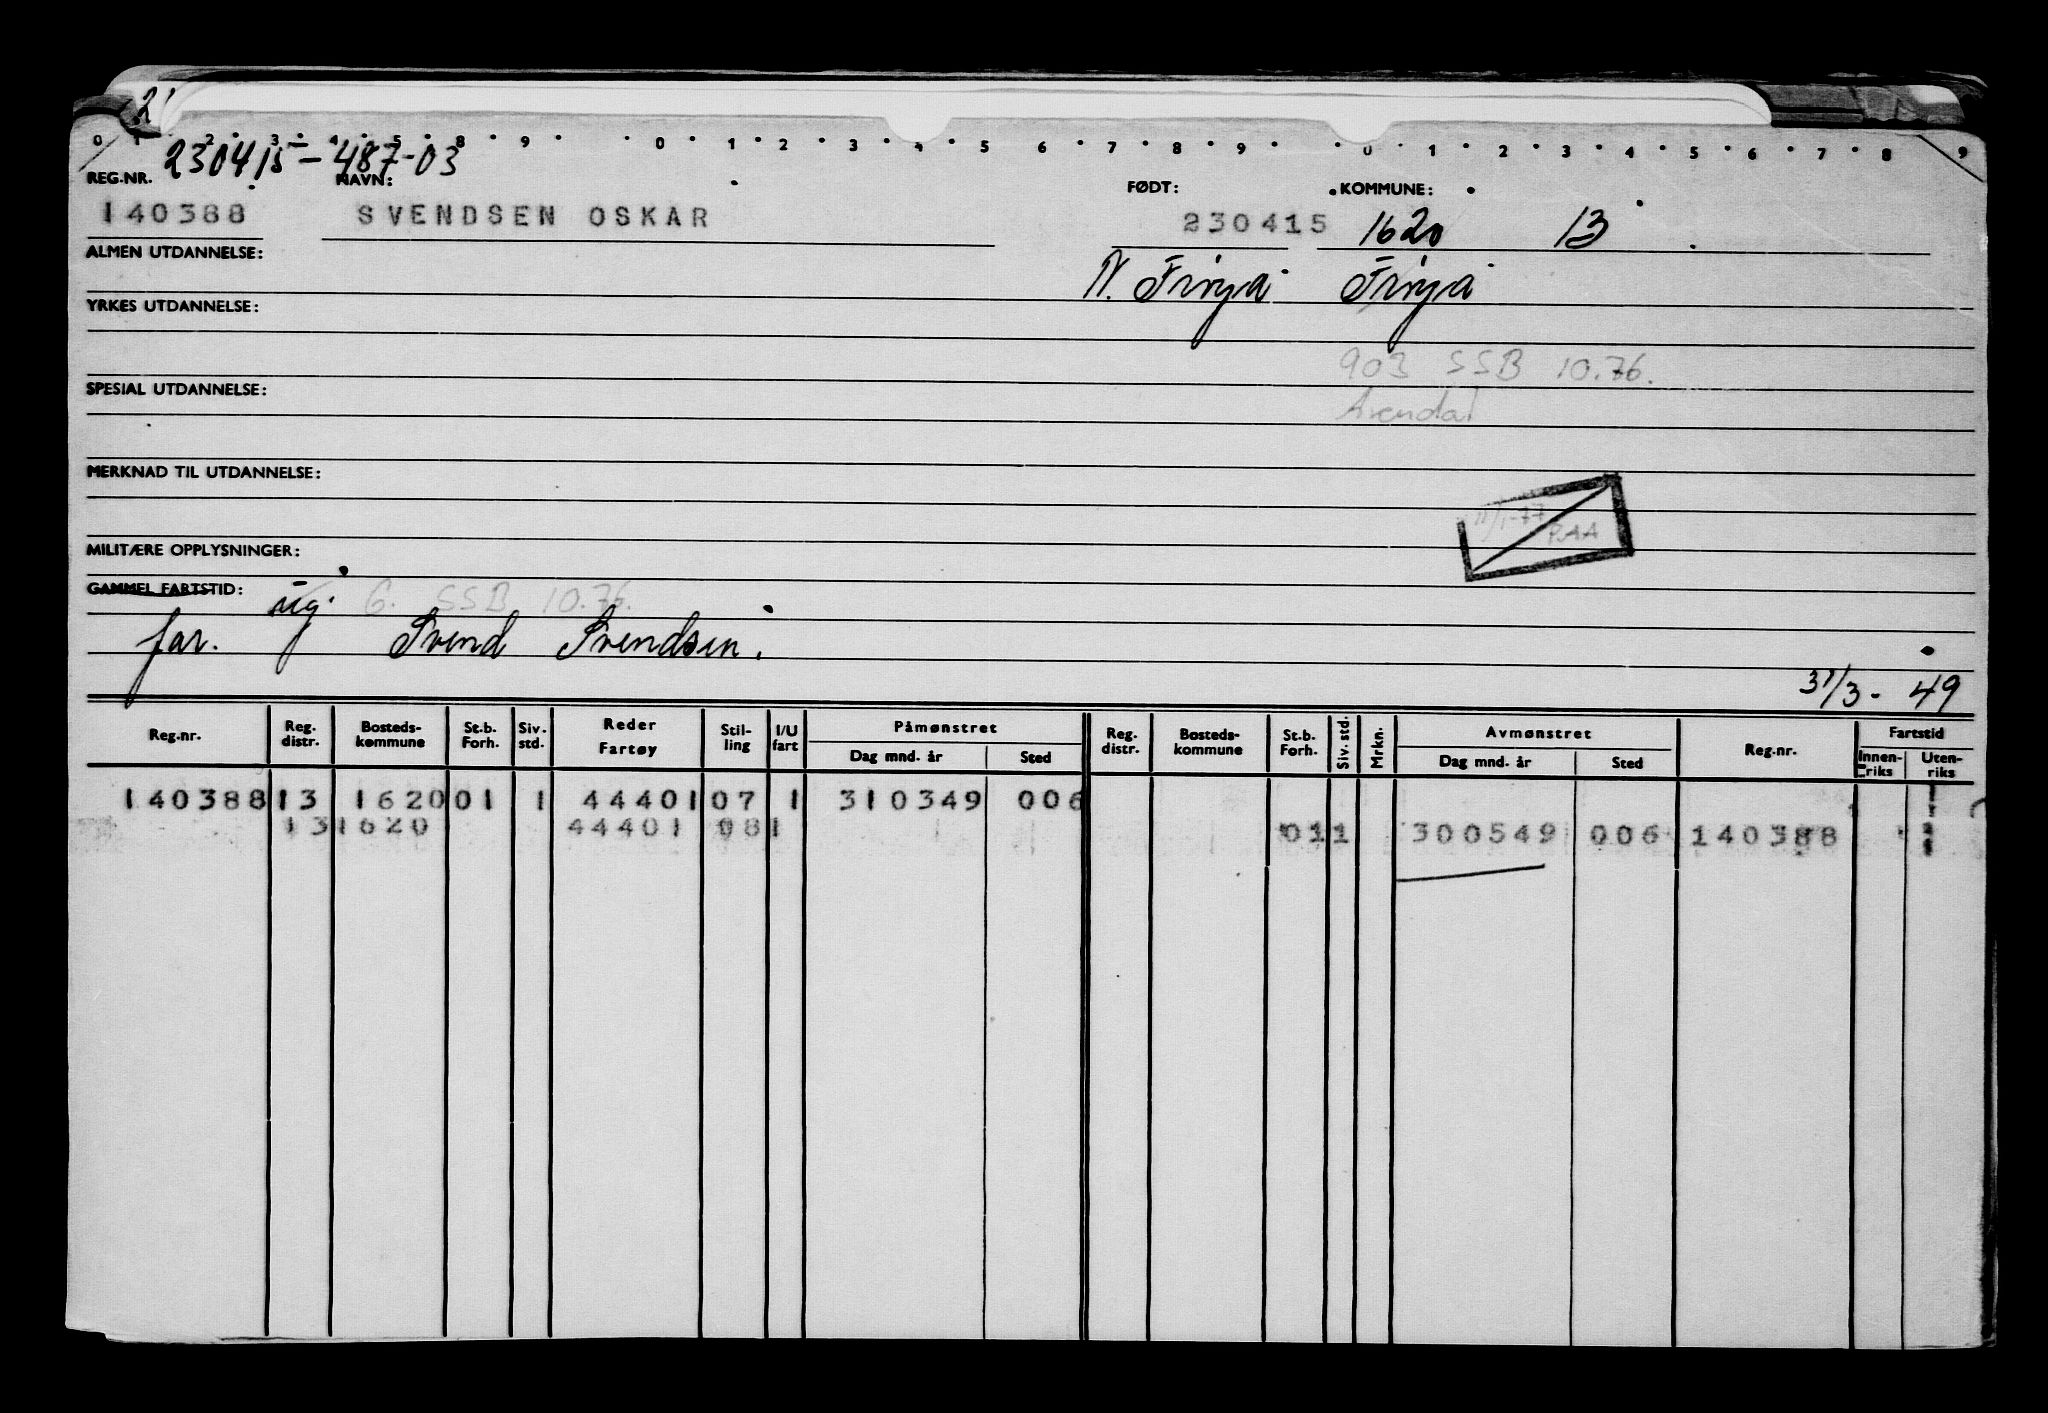 2'
0 1 2 3 4 5 8 9 0 1 2 3 4 5 6 7 8 9 0 1 2 3 4 5 6 7 8 9
230415-487-03
REG.NR. NAVN: FØDT: KOMMUNE:
140388 SVENDSEN OSKAR 230415 1620 13
ALMEN UTDANNELSE:
N. Frøya Frøya
YRKES UTDANNELSE:
903 SSB 10.76.
SPESIAL UTDANNELSE:
Arendal
MERKNAD TIL UTDANNELSE:
11/1-77
PAA
MILITÆRE OPPLYSNINGER:
GAMMEL FARTSTID:
ug. G. SSB 10.76.
far. Svend Svendsen.
31/3 - 49
Reg.nr. Reg. distr. Bosteds- kommune St.b. Forh. Siv. std. Reder Fartøy Stil- ling I/U fart Påmønstret Dag mnd. år Sted Reg. distr. Bosteds- kommune St.b. Forh. Siv. std. Mrkn. Avmønstret Dag mnd. år Sted Reg.nr. Fartstid Innen- riks Uten- riks
140388 13 1620 01 1 44401 07 1 310349 006
13 1620 44401 08 1 01 1 300549 006 140388